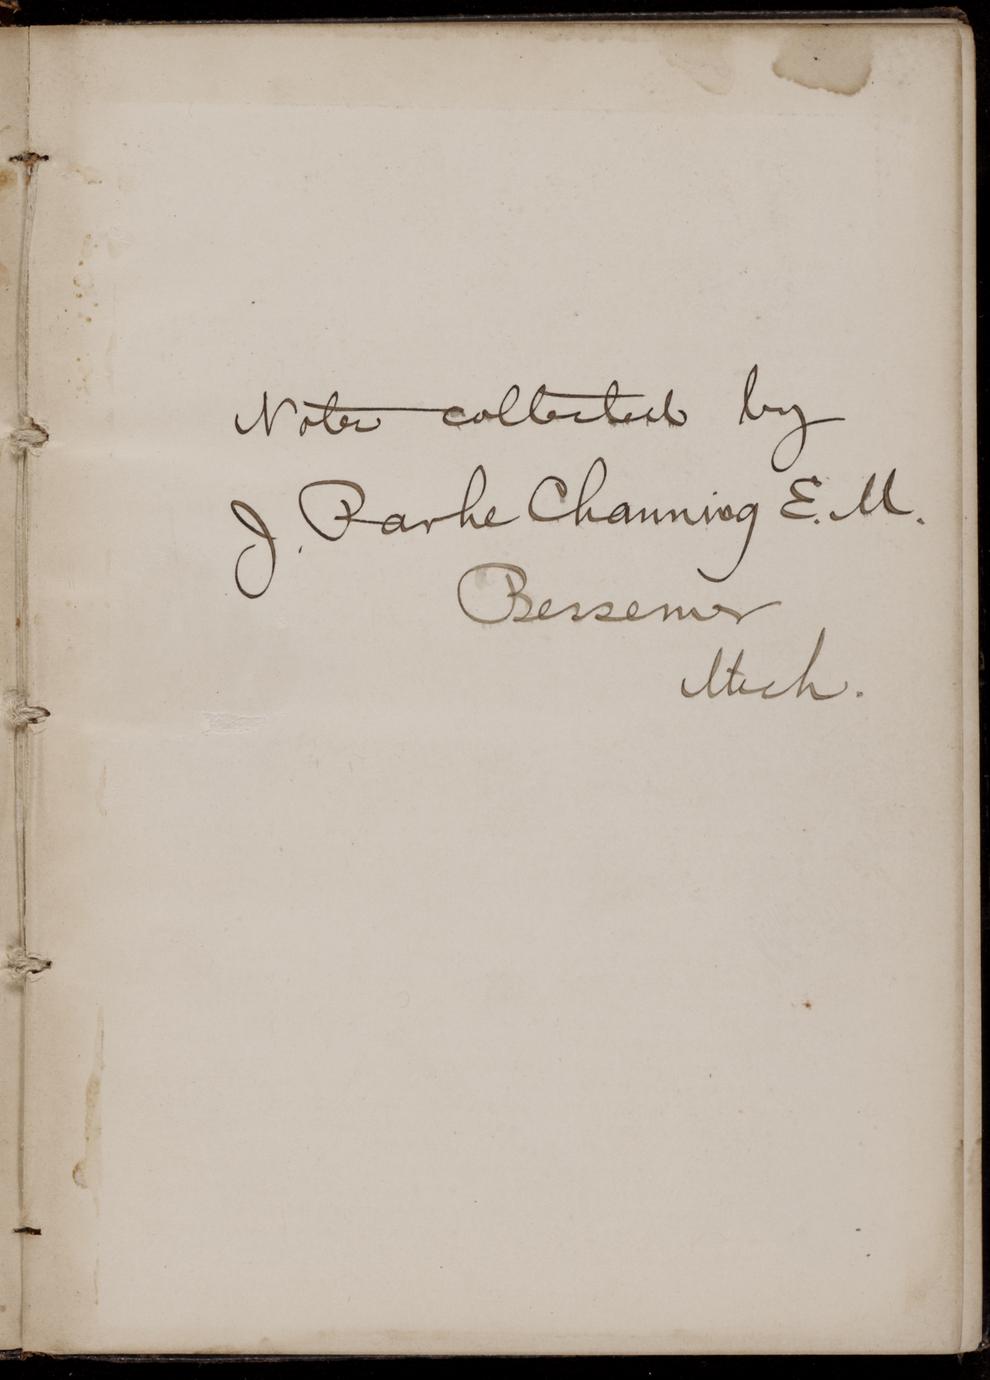 Notes collected by
J. Parke Channing E.M.
Bessemer
Mich.